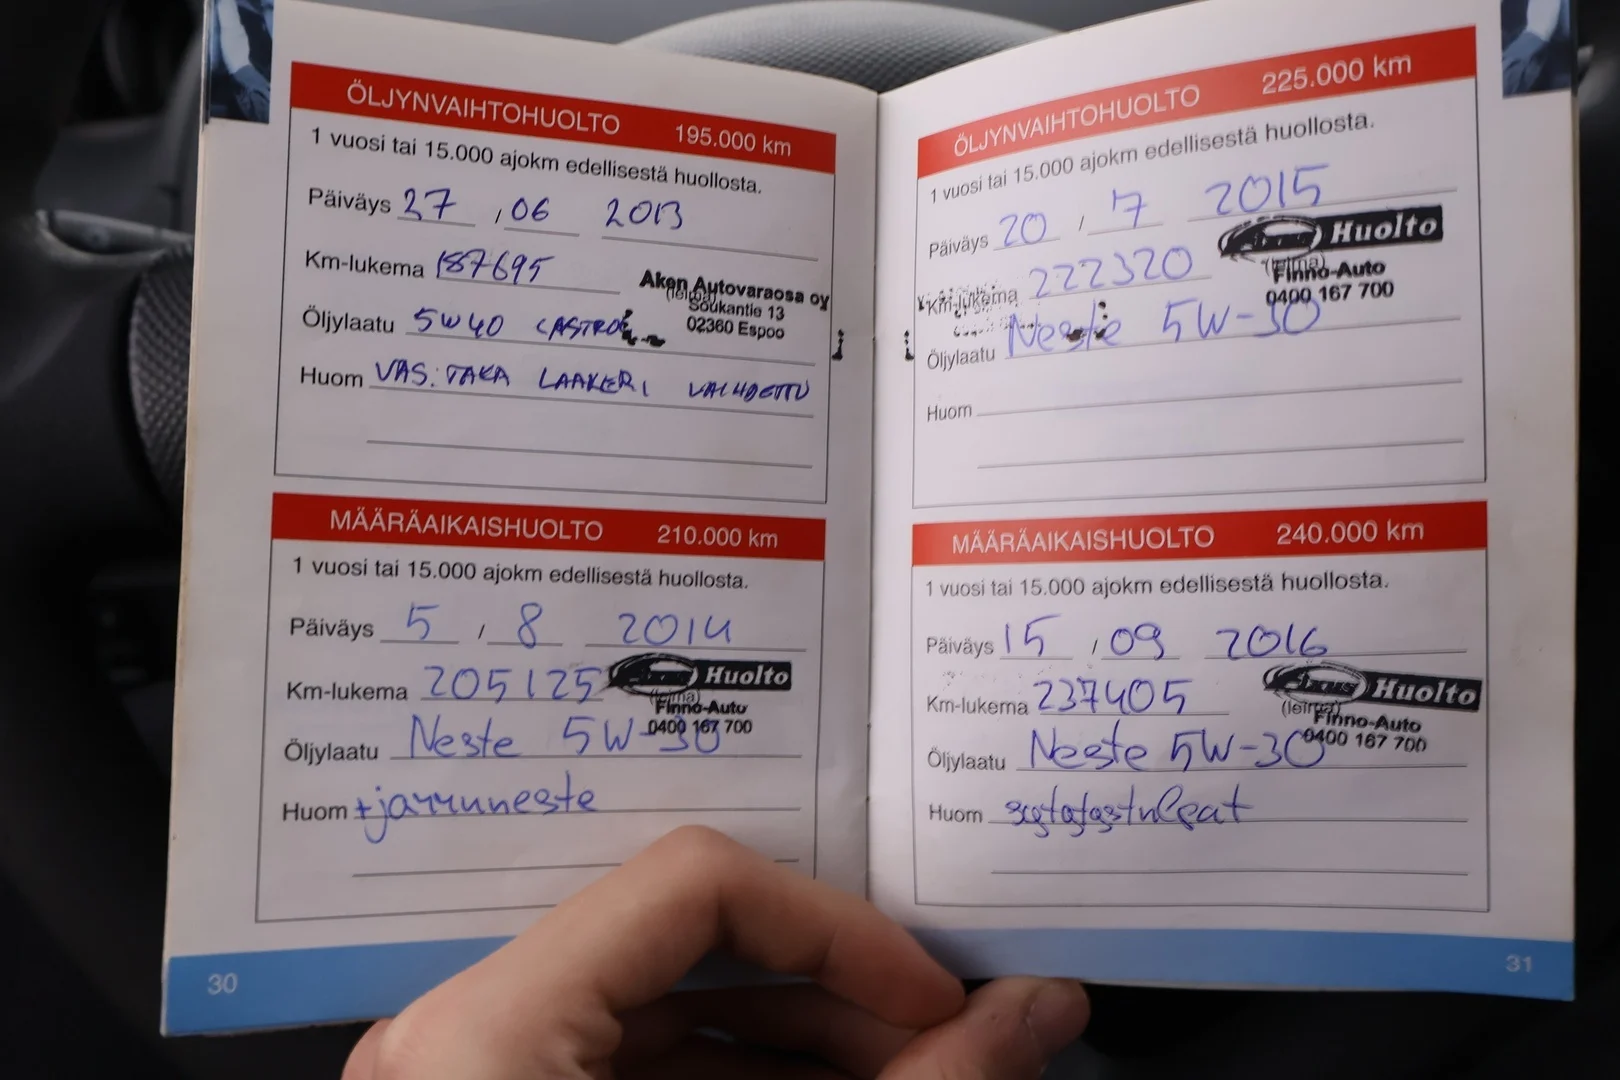 ÖLJYNVAIHTOHUOLTO 195.000 km
1 vuosi tai 15.000 ajokm edellisestä huollosta.
Päiväys 27 / 06 2013
Km-lukema 187695
Aken Autovaraosa oy
(leima)
Soukantie 13
02360 Espoo
Öljylaatu 5W40 CASTROL
Huom VAS. TAKA LAAKERI VAIHDETTU
MÄÄRÄAIKAISHUOLTO 210.000 km
1 vuosi tai 15.000 ajokm edellisestä huollosta.
Päiväys 5 / 8 2014
Km-lukema 205125
Huolto
(leima)
Finno-Auto
0400 167 700
Öljylaatu Neste 5W-30
Huom +jarruneste
30
ÖLJYNVAIHTOHUOLTO 225.000 km
1 vuosi tai 15.000 ajokm edellisestä huollosta.
Päiväys 20 / 7 2015
Huolto
Km-lukema 222320
(leima)
Finno-Auto
0400 167 700
Öljylaatu Neste 5W-30
Huom
MÄÄRÄAIKAISHUOLTO 240.000 km
1 vuosi tai 15.000 ajokm edellisestä huollosta.
Päiväys 15 / 09 2016
Km-lukema 237405
Huolto
(leima)
Finno-Auto
0400 167 700
Öljylaatu Neste 5W-30
Huom
31